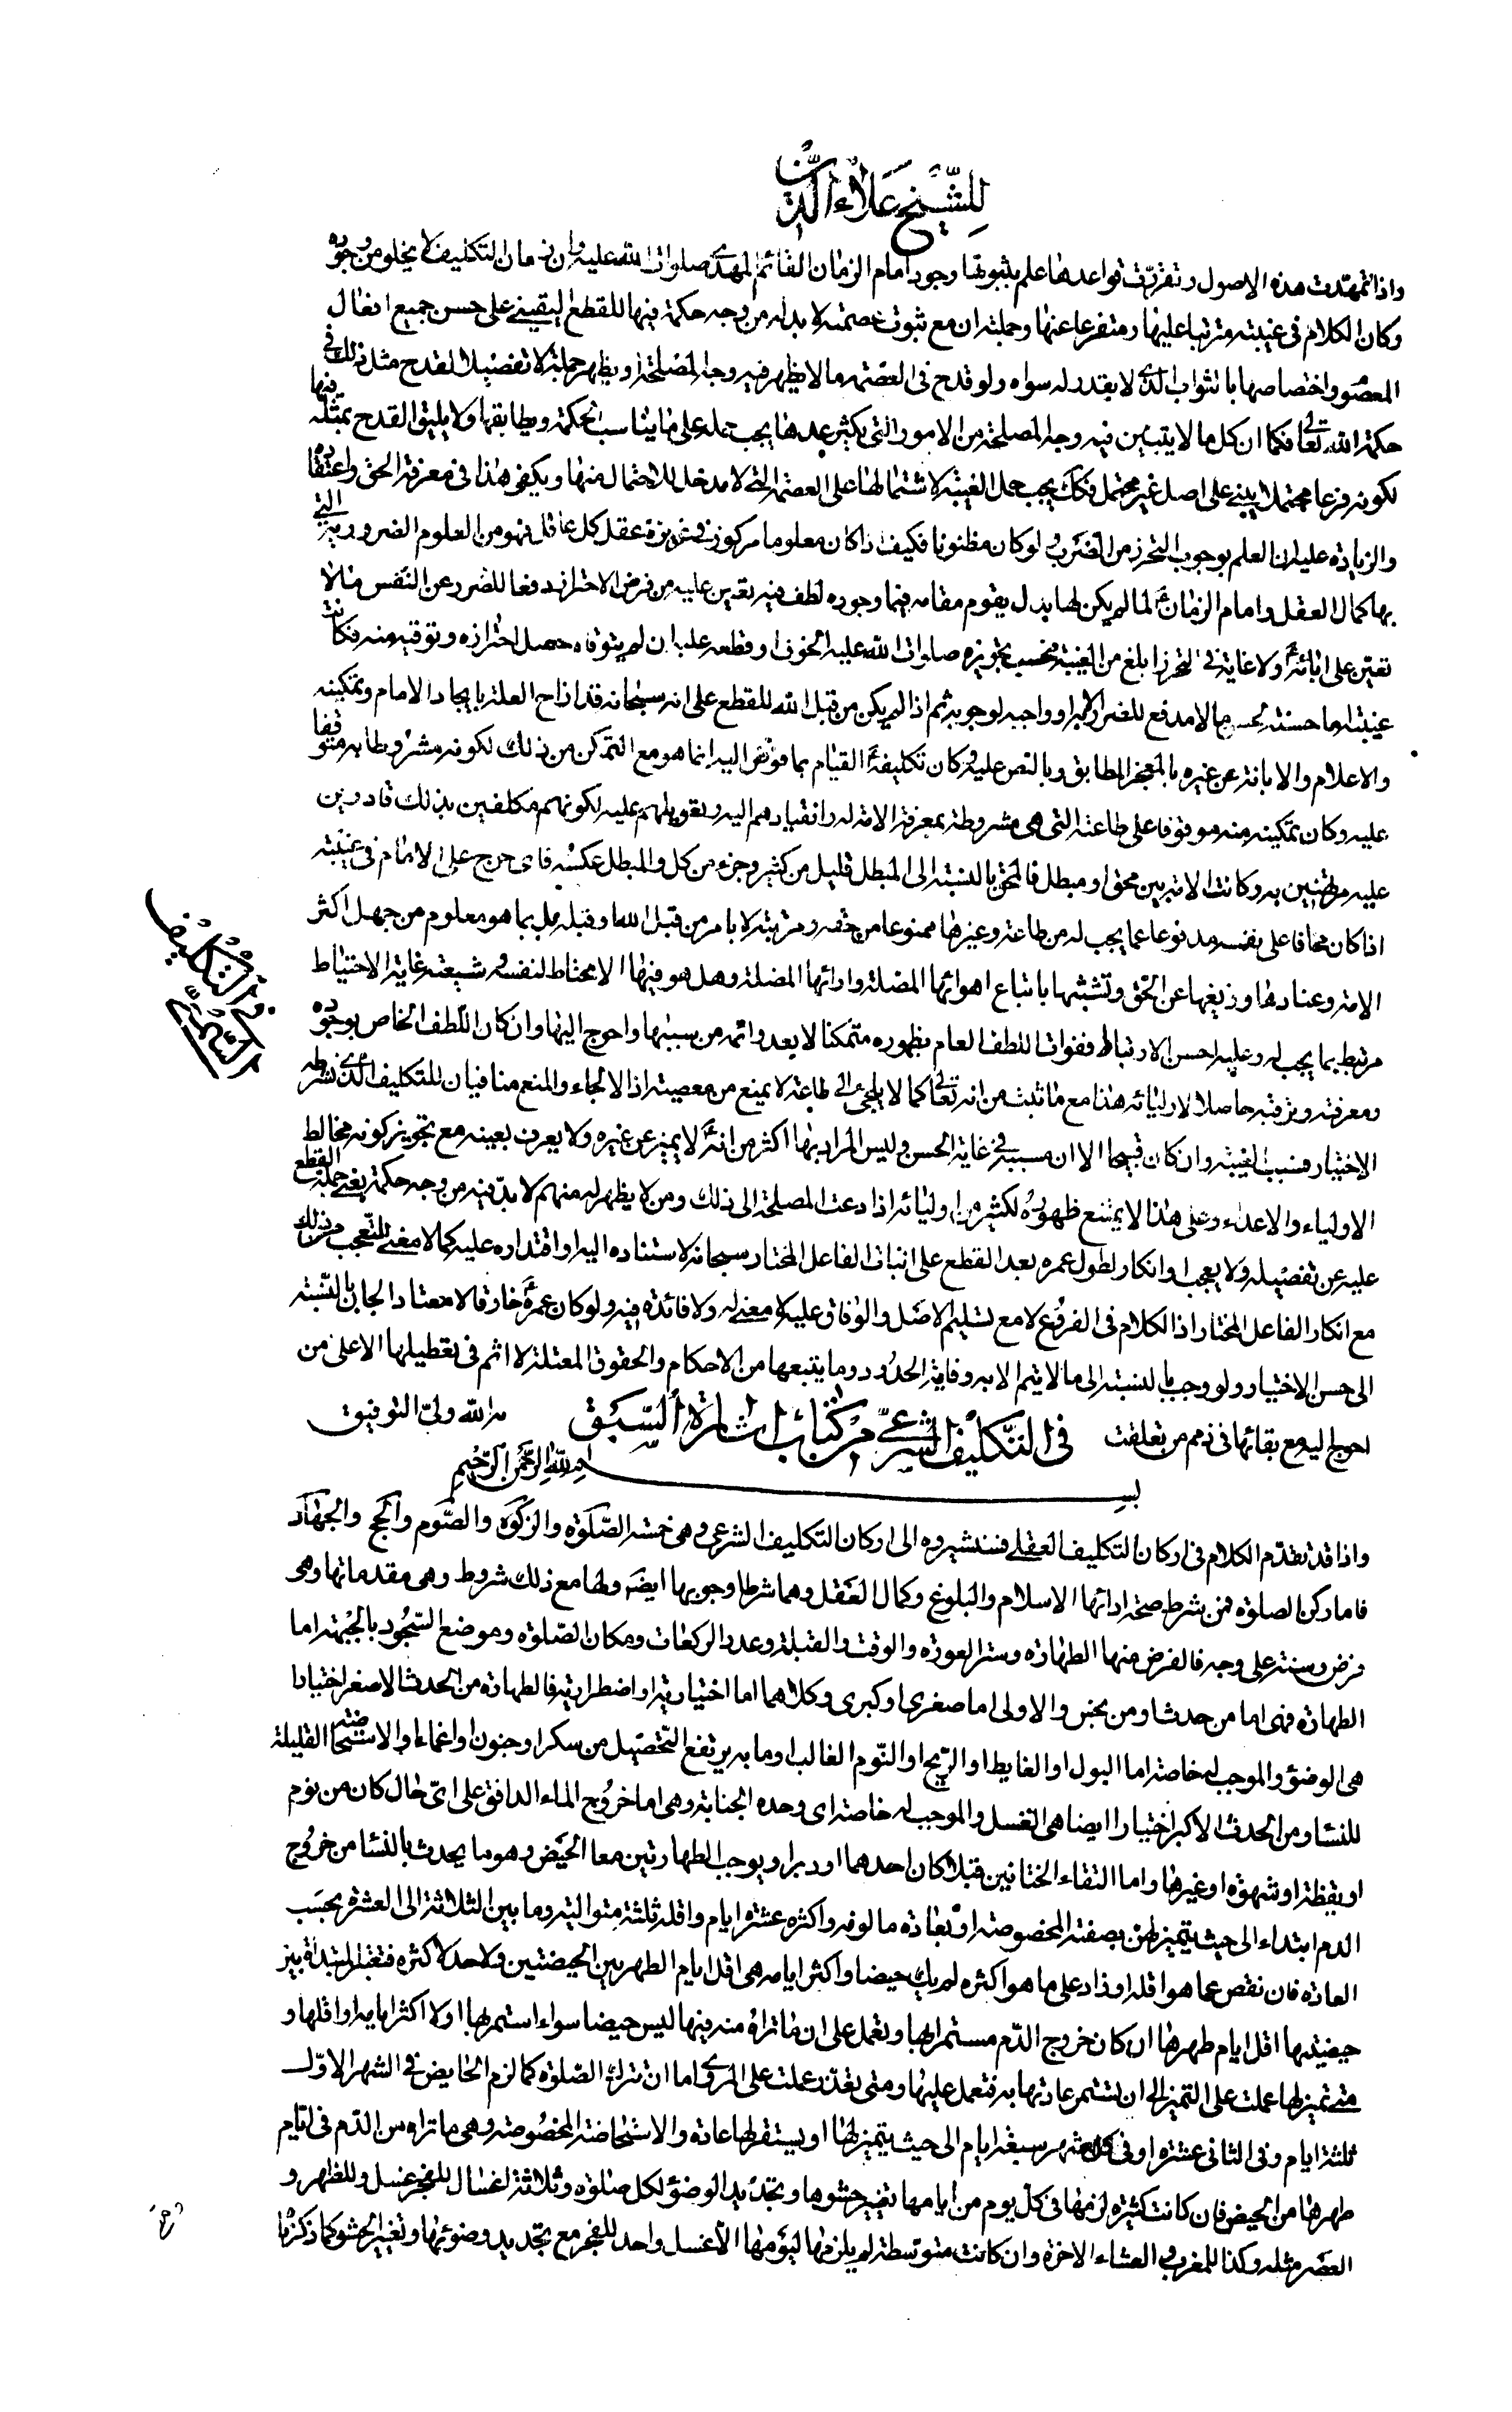 للشيخ علاء الدين
واذا تمهدت هذه الاصول وتقررت قواعدها علم بثبوتها وجود امام الزمان القائم المهدي صلوات الله عليه وان زمان التكليف لا يخلو من وجوده
وكان الكلام في غيبته مترتبا عليها ومتفرعا عنها وجملته ان مع ثبوت عصمته لا بد له من وجه حكمة فيها للقطع اليقيني على حسن جميع افعال
المعصوم واختصاصها بالثواب الذي لا يقدر له سواه ولو قدح في العصمة ما لا يظهر فيه وجه المصلحة او يظهر جملة لا تفصيلا لقدح مثل ذلك في
حكمة الله تعالى فكما ان كل ما لا يتبين فيه وجه المصلحة من الامور التي يكثر عدها يجب حمله على ما يناسب الحكمة ويطابقها ولا يليق القدح بمثله فيها
لكونه فرعا محتملا يبني على اصل غير محتمل فكك يجب حمل الغيبة لاشتمالها على العصمة التي لا مدخل للاحتمال منها ويكفي هذا في معرفة الحق واعتقاده
والزيادة عليه ان العلم بوجوب التحرز من الضرر لو كان مظنونا فكيف اذا كان معلوما مركوز في غريزة عقل كل عاقل فهو من العلوم الضرورية التي
بها كمال العقل وامام الزمان ع لما لم يكن لها بدل يقوم مقامه فيما وجوده لطف فيه تعين عليه من فرض الاحتراز دفعا للضرر عن النفس مالا
تعين على ابائه ع ولا غاية في التحرز ابلغ من الغيبة فبحسب تجويزه صلوات الله عليه الخوف او قطعه عليه ان لم يتوقاه حصل احترازه وتوقيه منه فكانت
غيبته اما حسنة لحسن ما لا مدفع للضرر الا به او واجبه لوجوبه ثم اذا لم يكن من قبل الله للقطع على انه سبحانه قد ازاح العلة بايجاد الامام وتمكينه
والاعلام والابانة عن غيره بالمعجز المطابق وبالنص عليه وكان تكليفه ع القيام بما فوض اليه انما هو مع التمكن من ذلك لكونه مشروطا به متوقفا
عليه وكان تمكينه منه موقوفا على طاعته التي هي مشروطة بمعرفة الامة له وانقيادهم اليه وتعويلهم عليه لكونهم مكلفين بذلك قادرين
عليه مرتضين به وكانت الامة بين محق او مبطل فالمحق بالنسبة الى المبطل قليل من كثير وجزء من كل والمبطل عكسه فاي حرج على الامام في غيبته
اذا كان مخافا على نفسه مدفوعا عما يجب له من طاعة وغيرها ممنوعا من حقه ومرتبته لا بامر من قبل الله او قبله بل بما هو معلوم من جهل اكثر
الامة وعنادها وزيغها عن الحق وتشبثها باتباع اهوائها المضلة وارائها المضلة وهل هو فيها الا محتاط لنفسه وشيعته غاية الاحتياط
مرتبط بما يجب له وعليه احسن الارتباط ففوات اللطف العام بظهوره متمكنا لا بعد واثمه من سببها واحوج اليها وان كان اللطف الخاص بوجوده
ومعرفته وترقبه حاصلا لاوليائه هذا مع ما ثبت من انه تعالى كما لا يلجئ الى طاعة لا يمنع من معصية اذ الالجاء والمنع منافيان للتكليف الذي شرطه
الاختيار فسبب الغيبة وان كان قبيحا الا ان مسببه في غاية الحسن وليس المراد بها اكثر من انه ع لا يميز عن غيره ولا يعرف بعينه مع تجويز كونه مخالط
الاولياء والاعداء وعلى هذا لا يمتنع ظهوره لكثير من اوليائه اذا دعت المصلحة الى ذلك ومن لا يظهر له منهم لا بد فيه من وجه حكمة يغني جملة القطع
عليه عن تفصيله ولا يعجب او انكار لطول عمره بعد القطع على اثبات الفاعل المختار سبحانه لاستناده اليه او اقتداره عليه كما لا معنى للتعجب من ذلك
مع انكار الفاعل المختار اذ الكلام في الفروع لا مع تسليم الاصل والوفاق عليه لا معنى له ولا فائدة فيه ولو كان عمره ع خارقا لا معتادا لجاز بالنسبة
الى حسن الاختيار ولو وجب بالنسبة الى ما لا يتم الا به وفاية الحدود وما يتبعها من الاحكام والحقوق المعتلة لا اثم في تعطيلها الا على من
احوج اليه مع بقائها في ذمم من تعلقت في التكليف الشرعي من كتاب اشارة السبق به الله ولي التوفيق
بسم الله الرحمن الرحيم
واذا قد تقدم الكلام في اركان التكليف العقلي فسنشير وه الى اركان التكليف الشرعي وهي خمسة الصلوة والزكوة والصوم والحج والجهاد
فاما ركن الصلوة فمن شرط صحة ادائها الاسلام والبلوغ وكمال العقل وهما شرطا وجوبها ايضه ولها مع ذلك شروط وهي مقدماتها وهي
فرض وسنة على وجه فالفرض منها الطهارة وستر العورة والوقت والقبلة وعدد الركعات ومكان الصلوة وموضع السجود بالجبهة اما
الطهارة فهي اما من حدث او من نجس والاولى اما صغرى او كبرى وكلاهما اما اختيارية او اضطرارية فالطهارة من الحدث الاصغر اختيارا
هي الوضوء والموجب له خاصة اما البول او الغايط او الريح او النوم الغالب او ما به يرتفع التحصيل من سكر او جنون او اغماء والاستحاضة القليلة
للنسا ومن الحدث الاكبر اختيارا ايضا هي الغسل والموجب له خاصة اي وحده الجنابة وهي اما خروج الماء الدافق على اي حال كان من نوم
او يقظة او شهوة او غيرها واما التقاء الختانين قبلا كان احدهما او دبرا ويوجب الطهارتين معا الحيض وهو ما يحدث بالنسا من خروج
الدم ابتداء الى حيث يتميز لهن بصفته المخصوصة او بعادة مالوفه واكثره عشرة ايام واقله ثلثة متوالية وما بين الثلاثة الى العشرة بحسب
العادة فان نقص عما هو اقله او زاد على ما هو اكثره لم يك حيضا واكثر ايامه هي اقل ايام الطهر بين الحيضتين ولا حد لاكثره فتفعل المبتداة بين
حيضتيها اقل ايام طهرها ان كان خروج الدم مستمرا بها وتعمل على ان ما تراه منه فيها ليس حيضا سواء استمر لها اولا اكثر ايامه او اقلها و
متى تميز لها عملت على التميز الى ان تستمر عادتها به فتعمل عليها ومتى تعذر عملت على المروي اما ان تترك الصلوة كما لزم الحايض في الشهر الاول
ثلثة ايام وفى الثاني عشرة او في كل شهر سبعة ايام الى حيث يتميز لها او يستقر لها عادة والاستحاضة المخصوصة وهي ما تراه من الدم في ايام
طهرها من الحيض فان كانت كثيرة لزمها في كل يوم من ايامها تغيير حشوها وتجديد الوضوء لكل صلوة وثلاثة اغسال للفجر غسل وللظهر و
العصر مثله وكذا للمغرب والعشاء الاخرة وان كانت متوسطة لم يلزمها ليومها الا غسل واحد للفجر مع تجديد وضوئها وتغيير الحشو كما ذكرنا
في التكليف
الشرعي